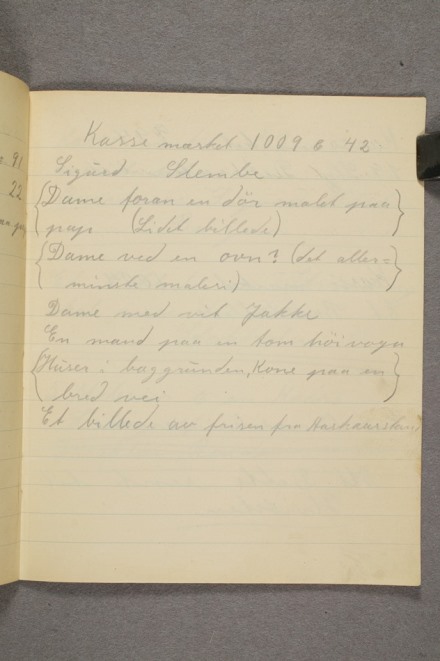 Kasse mærket 1009 G 42
Sigurd Slembe
{Dame foran en dör malet paa}
pap (Lidet billede)
{Dame ved en ovn? (det aller=}
minste maleri)
Dame med vit Jakke
En mand paa en tom höivogn
{Huser i baggrunden, Kone paa en}
bred vei
Et billede av frisen fra
91
22